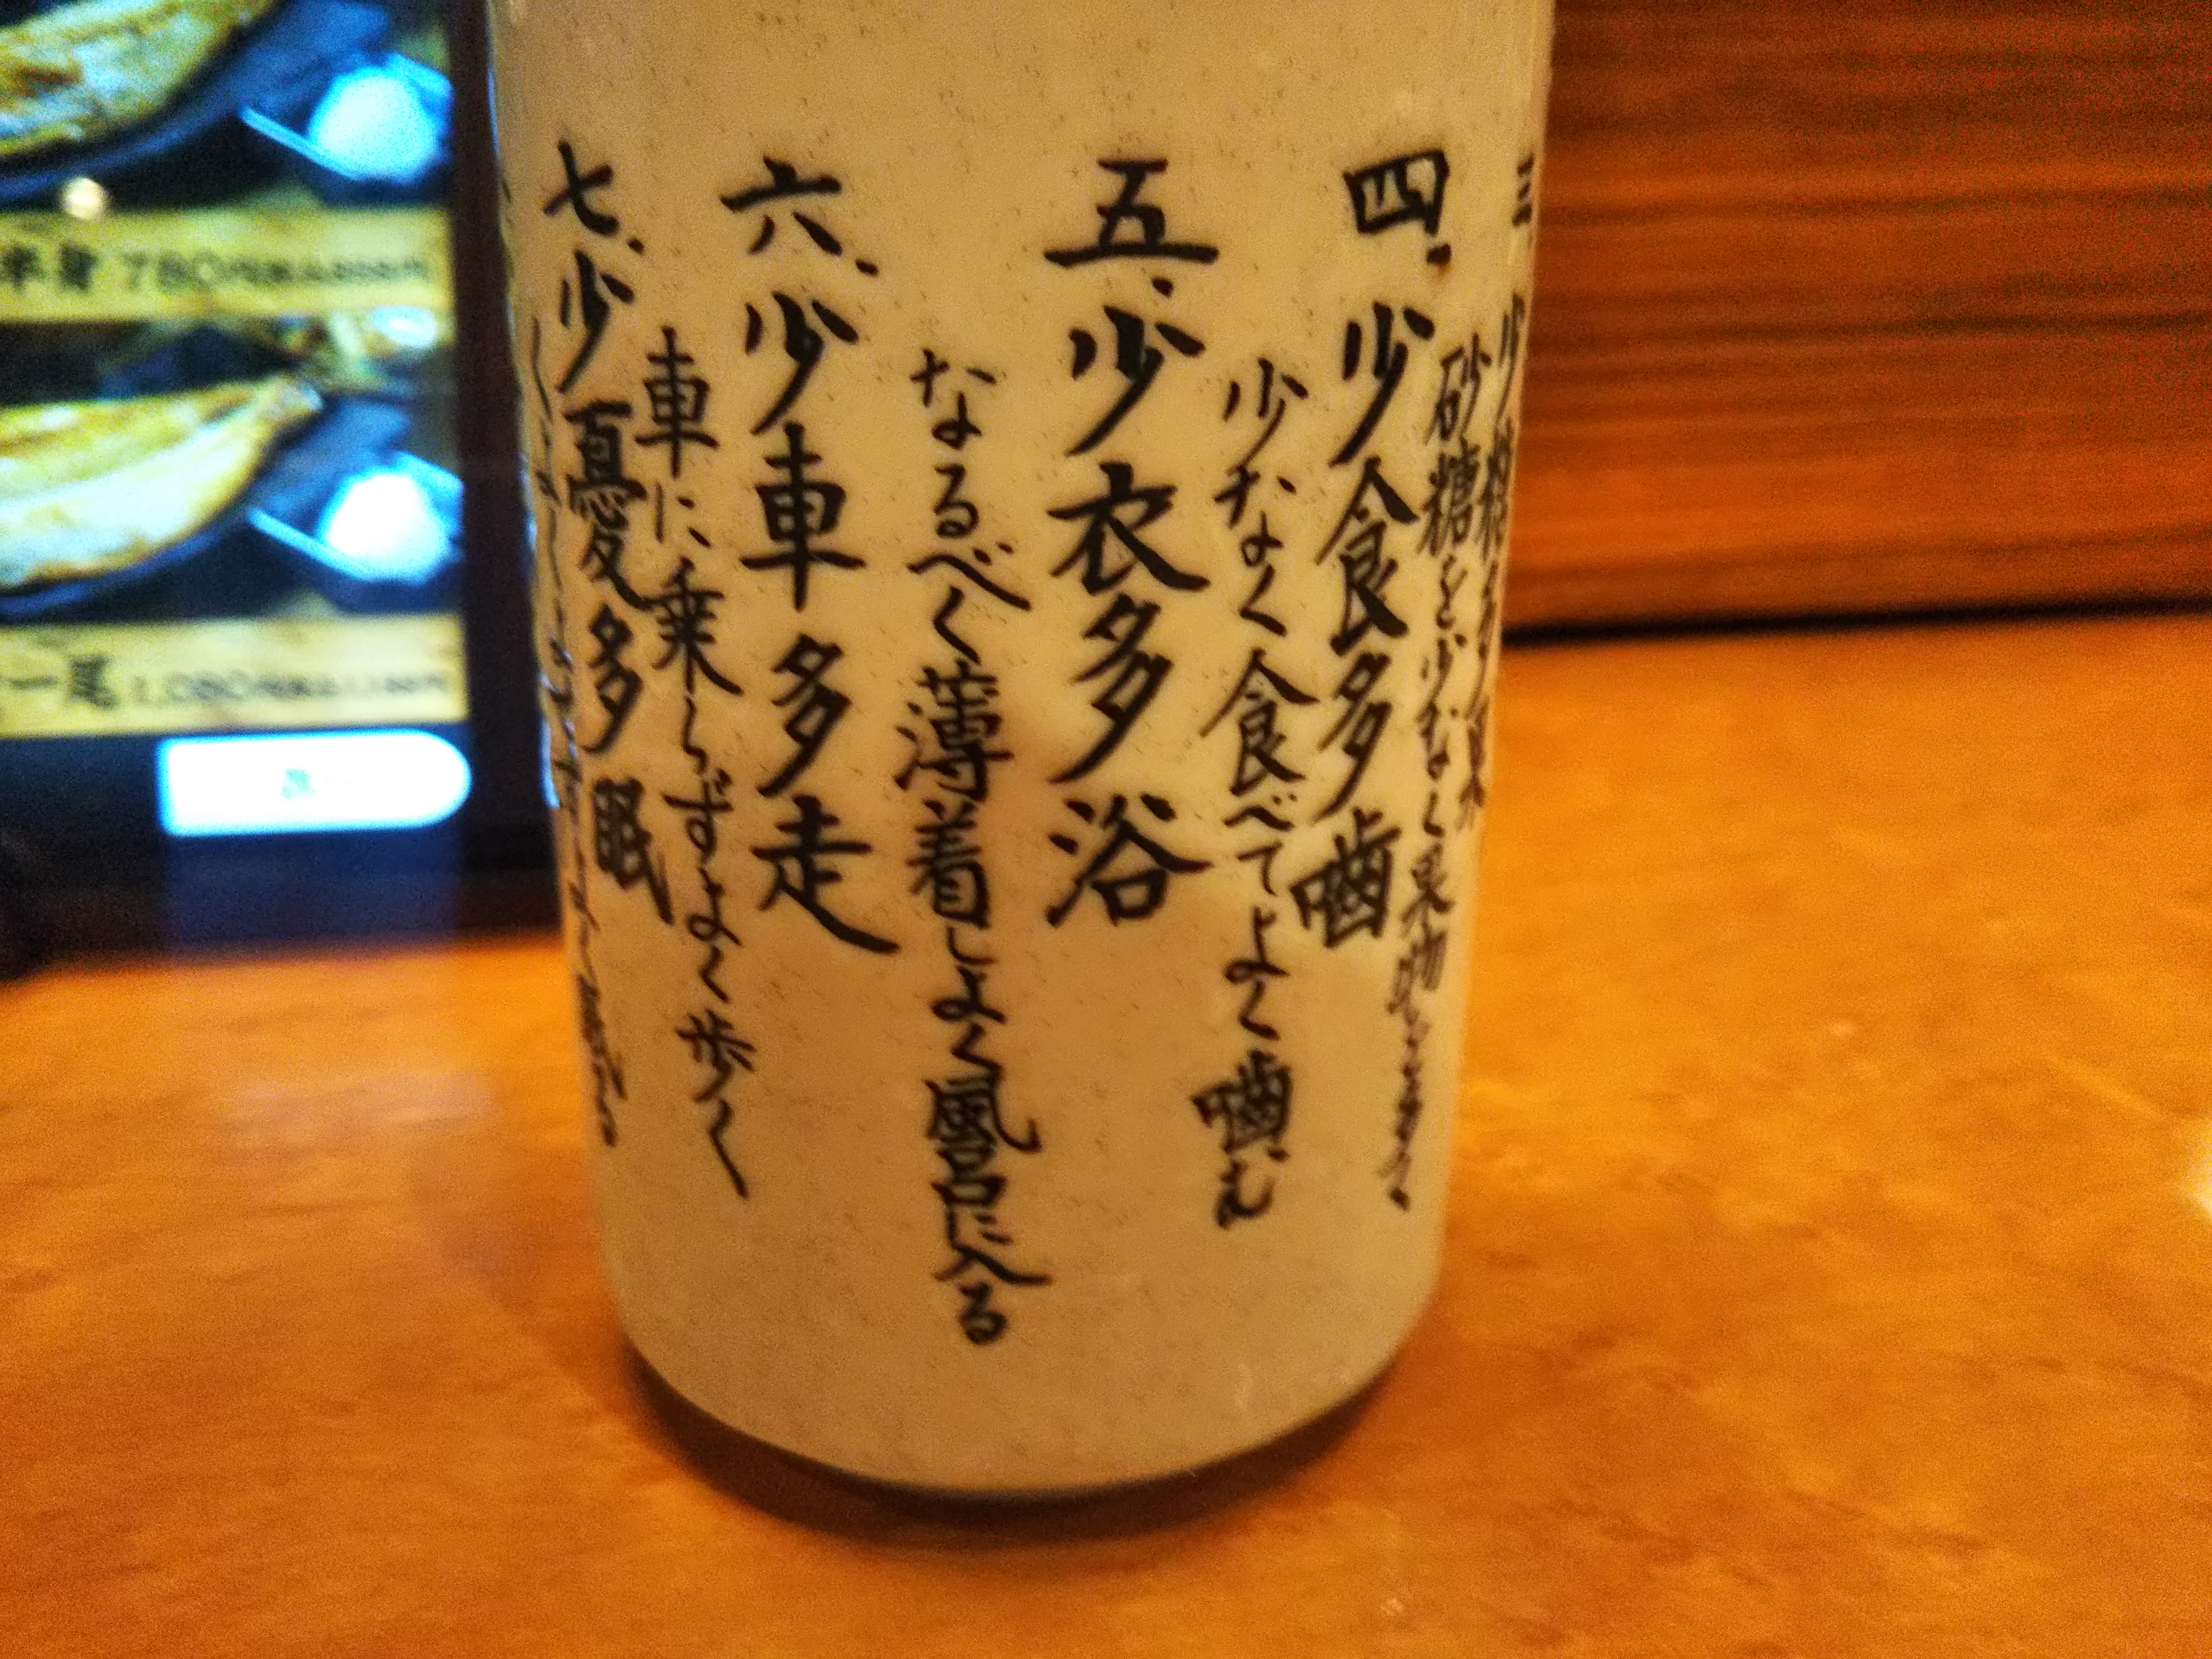 砂糖を少なく果物
四、少食多噛
少なく食べてよく噛む
五、少衣多浴
なるべく薄着しよく風呂に入る
六、少車多走
車に乗らずよく歩く
七、少憂多眠
半身 780円
一尾 1,080円